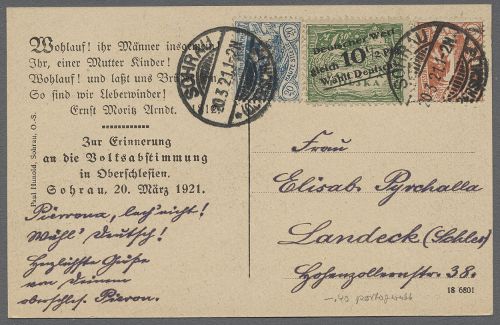 Wohlauf! ihr Männer insgemein,
Ihr, einer Mutter Kinder!
Wohlauf! und laßt uns Brüder
So sind wir Ueberwinder!
Ernst Moritz Arndt.
Zur Erinnerung
an die Volksabstimmung
in Oberschlesien.
Sohrau, 20. März 1921.
Pierrona, lach' nicht!
Wähl' Deutsch!
Herzlichste Grüße
von Deinem
oberschles. Pieron.
Paul Hunold, Sohrau, O.-S.
SOHRAU
20.3.21.1-2N.
20
Wert
gleich 10
Wählt Deutsch
SOHRAU
20.3.21.1-2N.
Frau
Elisab. Pyrchalla
Landeck (Schles)
Hohenzollernstr. 38.
18 6801